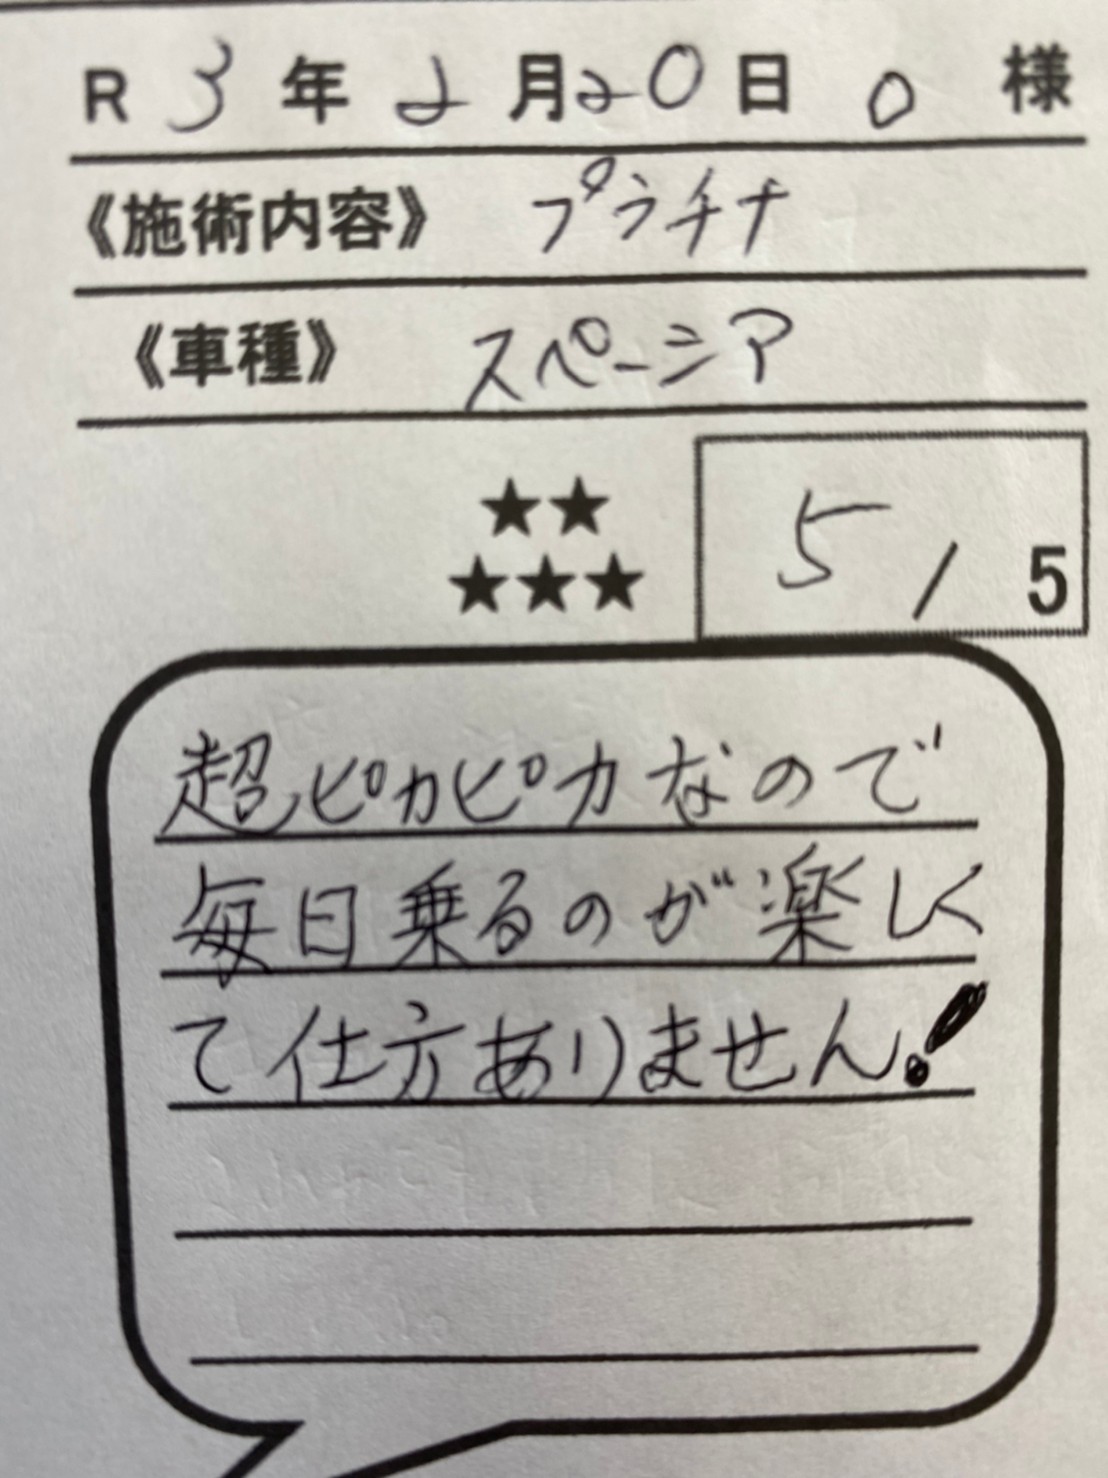 R 3 年 2 月 20 日 O 様
《施術内容》 プラチナ
《車種》 スペーシア
★★
★★★
5 / 5
超ピカピカなので
毎日乗るのが楽しく
て仕方ありません!